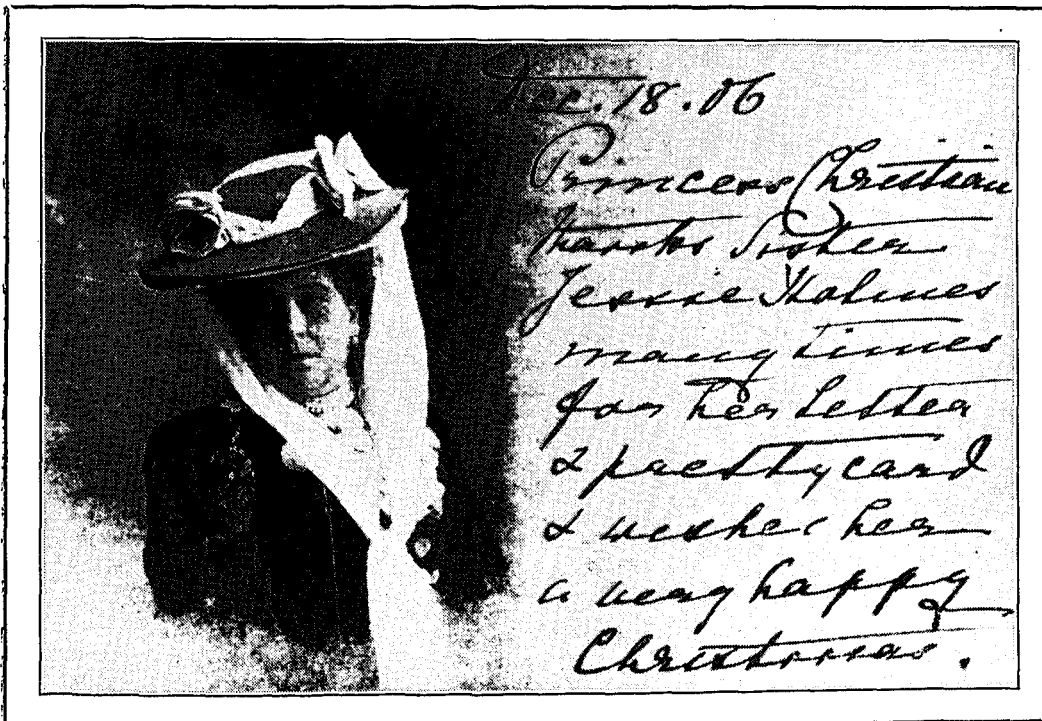 Dec. 18. 06
Princess Christian
thanks Sister
Jessie Holmes
many times
for her letter
& pretty card
& wishes her
a very happy
Christmas.